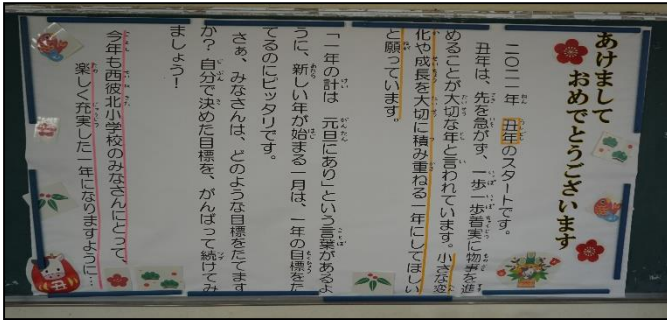 あけまして
おめでとうございます
二〇二一年 丑年のスタートです。
丑年は、先を急がず、一歩一歩着実に物事を進
めることが大切な年と言われています。小さな変
化や成長を大切に積み重ねる一年にしてほしい
と願っています。
「一年の計は 元旦にあり」という言葉があるよ
うに、新しい年が始まる一月は、一年の目標をた
てるのにピッタリです。
さぁ、みなさんは、どのような目標をたてます
か?自分で決めた目標を、がんばって続けてみ
ましょう!
今年も西彼北小学校のみなさんにとって、
楽しく充実した一年になりますように…
丑